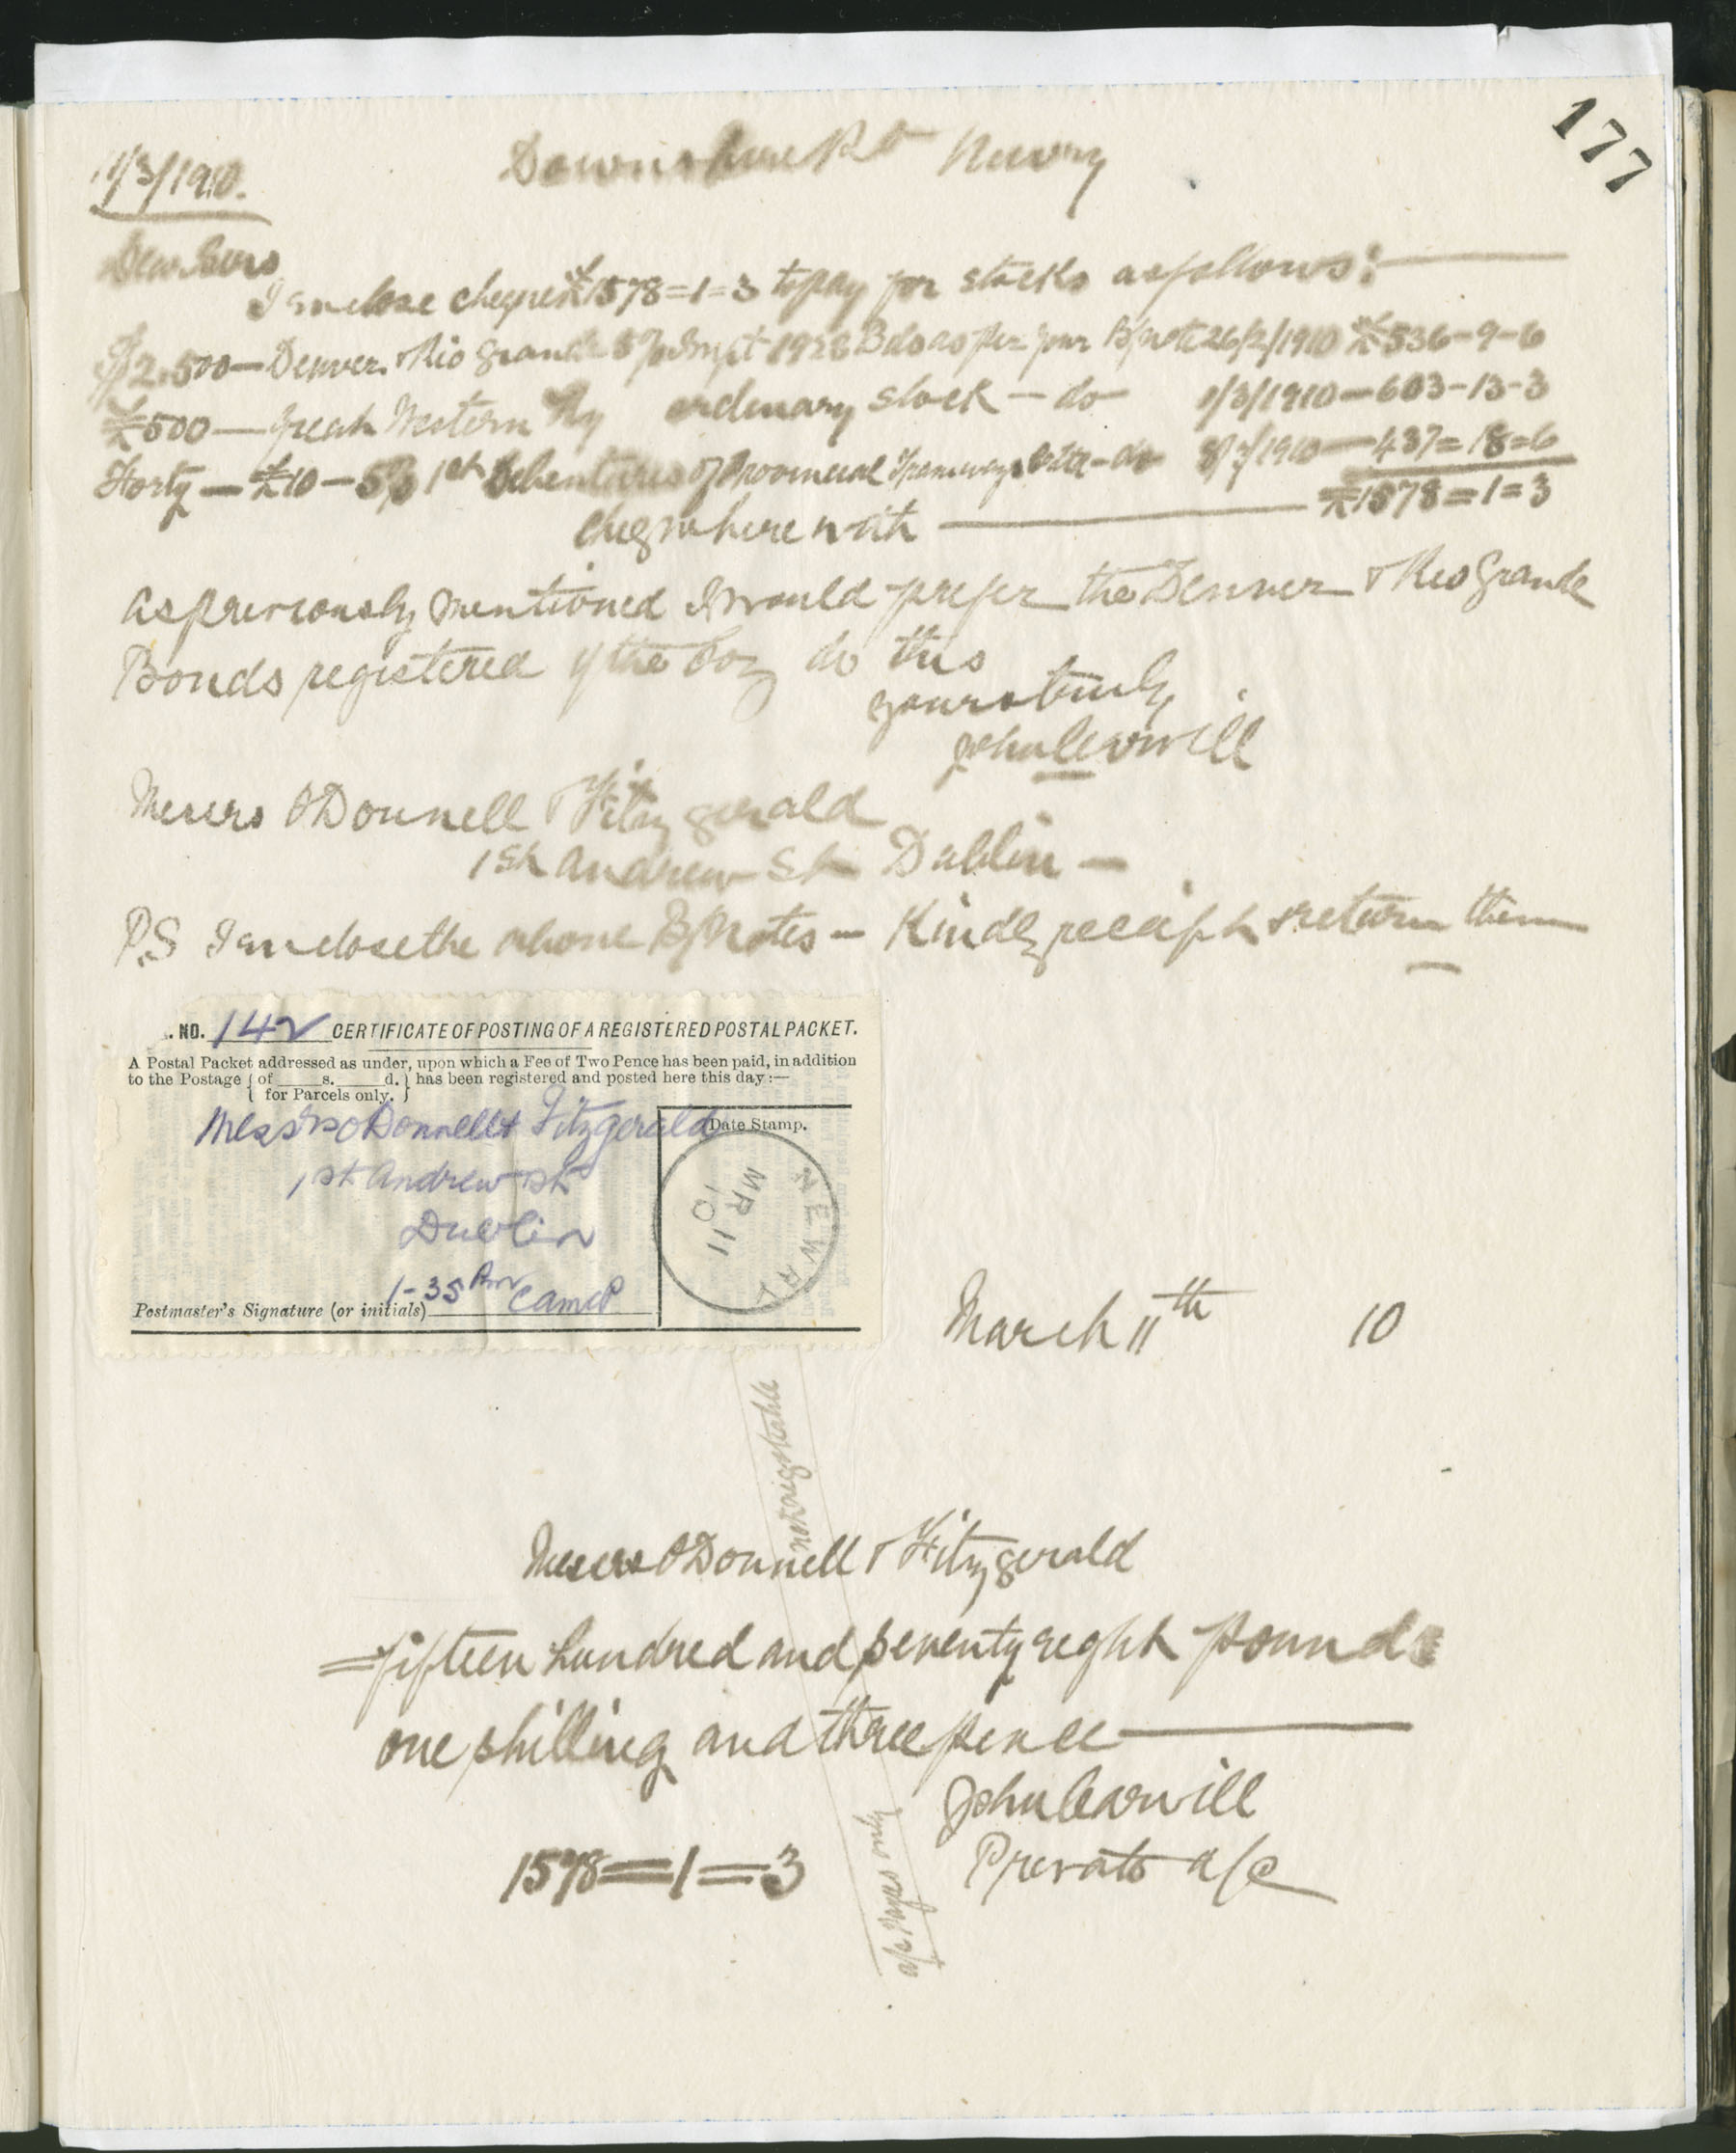 177
11/3/1910.
Downshire Rd Newry
Dear Sirs
I enclose cheque £1578=1=3 to pay for stocks as follows:—
$2.500— Denver & Rio Grande 5% Impt 1928 Bds as per your B/note 26/2/1910 £536-9-6
£500— Great Western Ry ordinary stock — do — 1/3/1910— 603-13-3
Forty — £10 — 5% 1st Debentures of Provincial Tramways — do 8/3/1910— 437=18=6
cheq herewith — £1578=1=3
As previously mentioned I would prefer the Denver & Rio Grande
Bonds registered if the Coy do this
yours truly
John Carvill
Messrs O'Donnell & Fitzgerald
1 St Andrew St Dublin —
P.S I enclose the above B/Notes — Kindly receipt & return them
NO. 142 CERTIFICATE OF POSTING OF A REGISTERED POSTAL PACKET.
A Postal Packet addressed as under, upon which a Fee of Two Pence has been paid, in addition
to the Postage { of ____s. ____d. } has been registered and posted here this day:—
{ for Parcels only. }
Messrs O'Donnell & Fitzgerald
1 St Andrew St
Dublin
1-35 Pm
Postmaster's Signature (or initials)
Date Stamp.
NEWRY
MR 11
10
March 11th 10
not negotiable
Messrs O'Donnell & Fitzgerald
=fifteen hundred and seventy eight pounds
one shilling and three pence—
John Carvill
1578=1=3
Private a/c
a/c Payees only